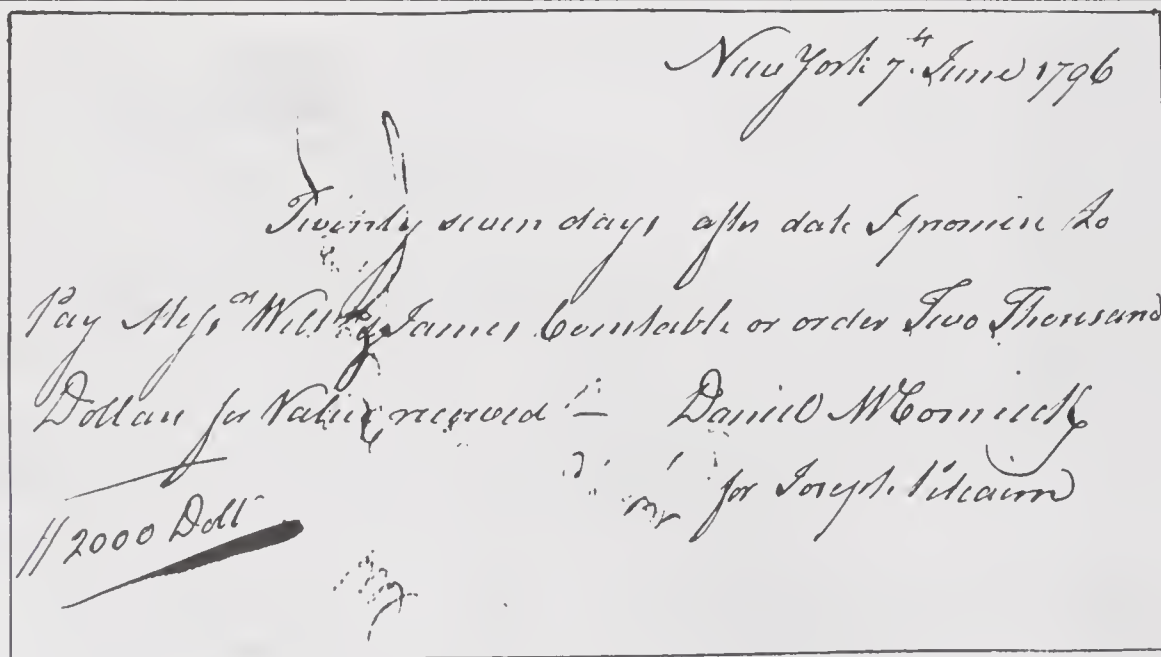 New York 7th June 1796
Twenty seven days after date I promise to
Pay Messrs Willm & James Constable or order Two Thousand
Dollars for Value received — Daniel McCormick
for Joseph Pitcairn
// 2000 Dolls